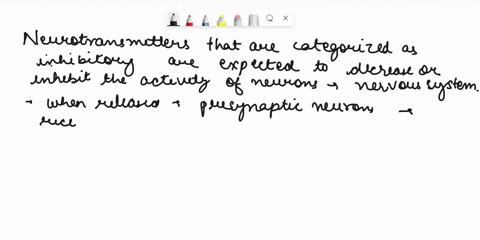 Neurotransmitters that are categorized as
inhibitory are expected to decrease or
inhibit the activity of neurons → nervous system.
→ when released → presynaptic neurons →
rece